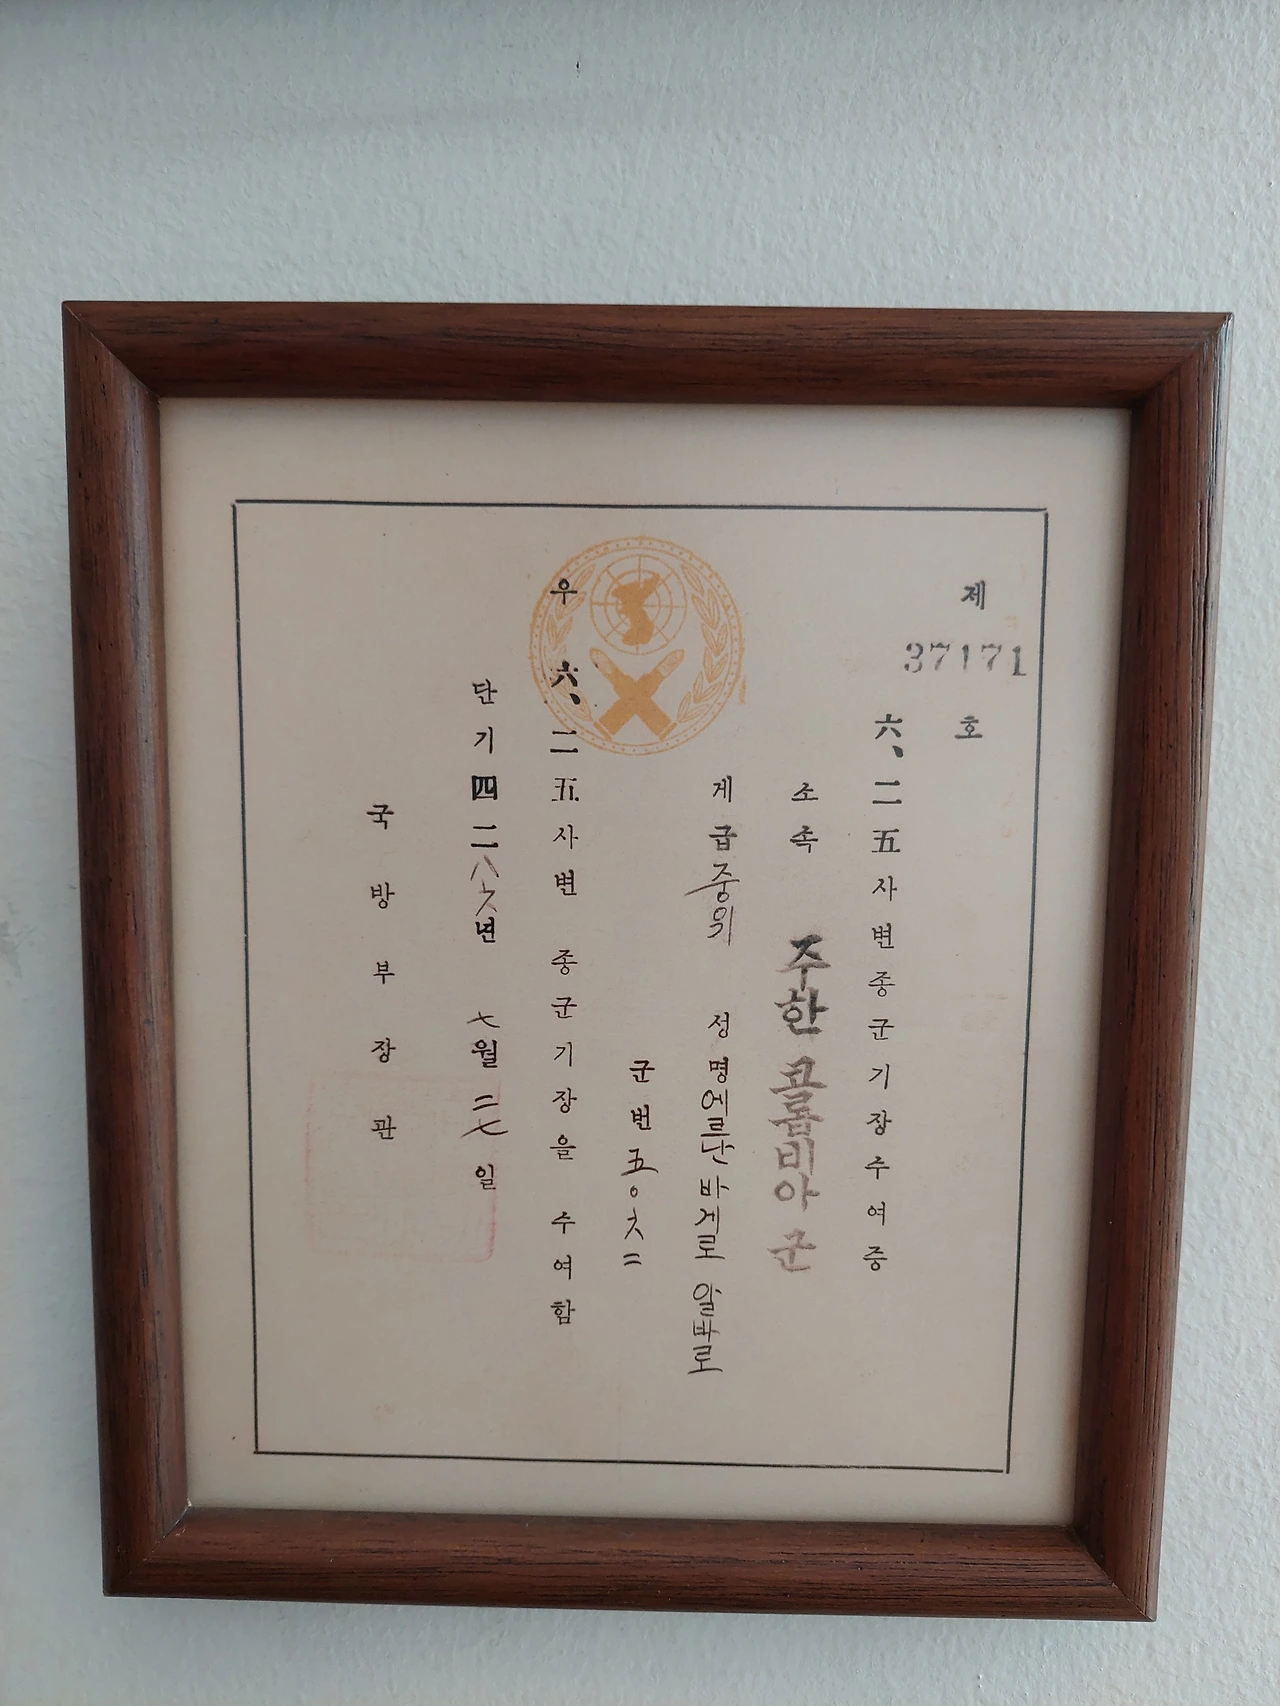 제 37171 호
六、二五사변종군기장수여증
소속 주한 콜롬비아 군
게급 중위 성명 에르난 바게로 알바로
군번 五〇六二
우 六、二五사변 종군기장을 수여함
단기四二八六년 七월 二七일
국방부장관